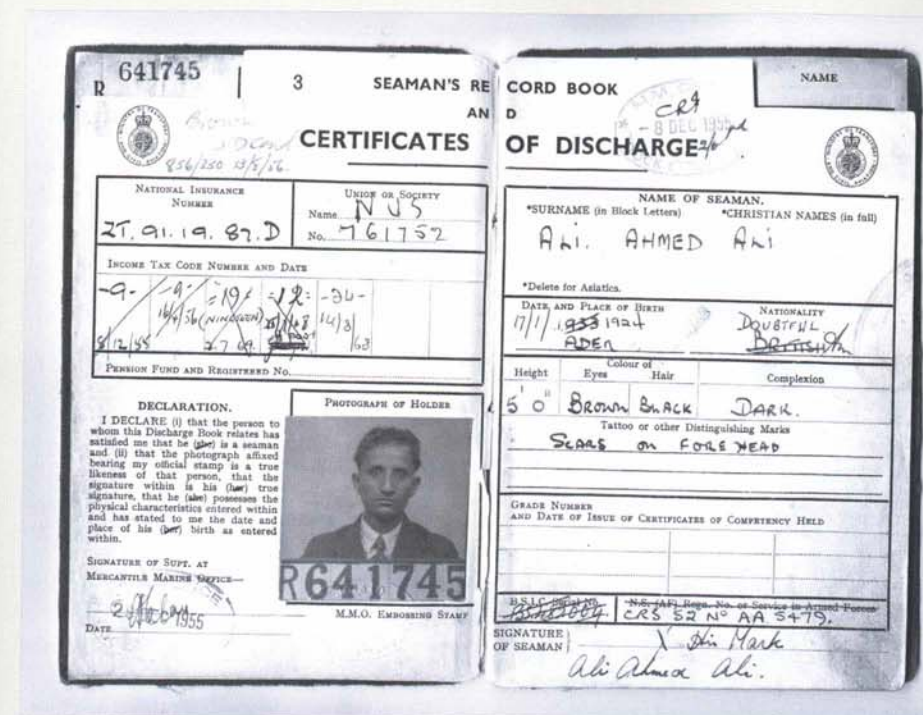 R 641745
3 SEAMAN'S RECORD BOOK
AND
CERTIFICATES OF DISCHARGE
NAME
CRS
- 8 DEC 1955
Brown
856/250 13/5/56.
NATIONAL INSURANCE
NUMBER
ZT. 91. 19. 87. D
UNION OR SOCIETY
Name NUS
No. 761752
INCOME TAX CODE NUMBER AND DATE
-9- -9- =19= =12= -24-
(NINETEEN)
8/12/55
PENSION FUND AND REGISTERED No.
DECLARATION.
I DECLARE (i) that the person to
whom this Discharge Book relates has
satisfied me that he (she) is a seaman
and (ii) that the photograph affixed
bearing my official stamp is a true
likeness of that person, that the
signature within is his (her) true
signature, that he (she) possesses the
physical characteristics entered within
and has stated to me the date and
place of his (her) birth as entered
within.
SIGNATURE OF SUPT. AT
MERCANTILE MARINE OFFICE—
DATE 1955
PHOTOGRAPH OF HOLDER
R641745
M.M.O. EMBOSSING STAMP
NAME OF SEAMAN.
*SURNAME (in Block Letters) *CHRISTIAN NAMES (in full)
ALI. AHMED ALI
*Delete for Asiatics.
DATE AND PLACE OF BIRTH
17/1/1933 1924
ADEN
NATIONALITY
DOUBTFUL
BRITISH
Colour of
Height Eyes Hair Complexion
5' 0" BROWN BLACK DARK.
Tattoo or other Distinguishing Marks
SCARS ON FOREHEAD
GRADE NUMBER
AND DATE OF ISSUE OF CERTIFICATES OF COMPETENCY HELD
B.S.I.C. Serial No. N.S. (AF) Regn. No. or Service in Armed Forces
CRS 52 No AA 5479.
SIGNATURE
OF SEAMAN
X His Mark
Ali Ahmed Ali.